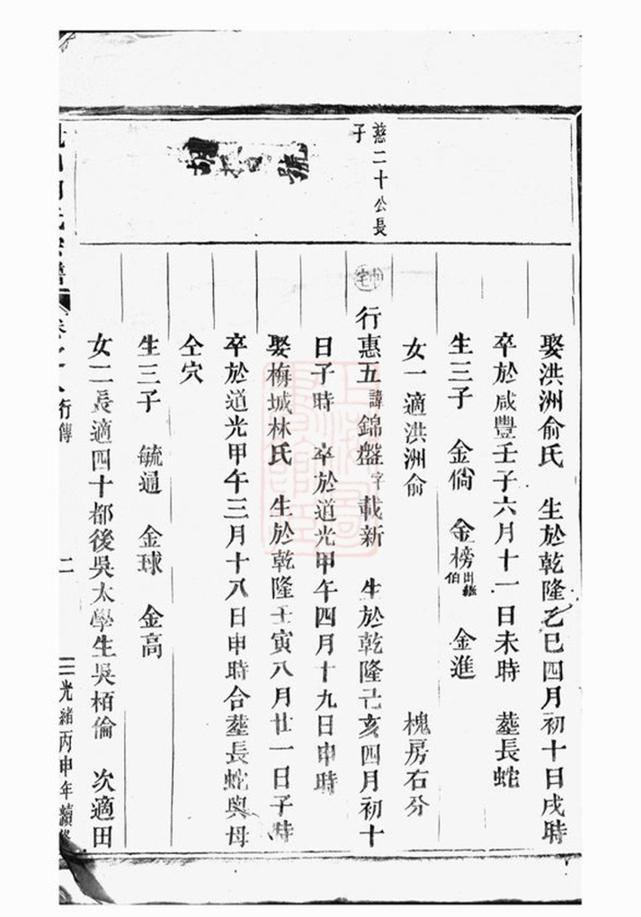 娶洪洲俞氏 生於乾隆乙巳四月初十日戌時
卒於咸豐壬子六月十一日未時 葬長蛇
生三子 金倘 金榜出繼伯 金進
女一適洪洲俞 槐房右分
慈二十公長
子
行惠五諱錦盤字載新 生於乾隆己亥四月初十
日子時 卒於道光甲午四月十九日申時
娶梅城林氏 生於乾隆壬寅八月廿一日子時
卒於道光甲午三月十八日申時合葬長蛇與母
仝穴
生三子 毓通 金球 金高
女二長適四十都後吳太學生吳栢倫 次適田
氏宗譜 卷 行傳 二 光緒丙申年續修